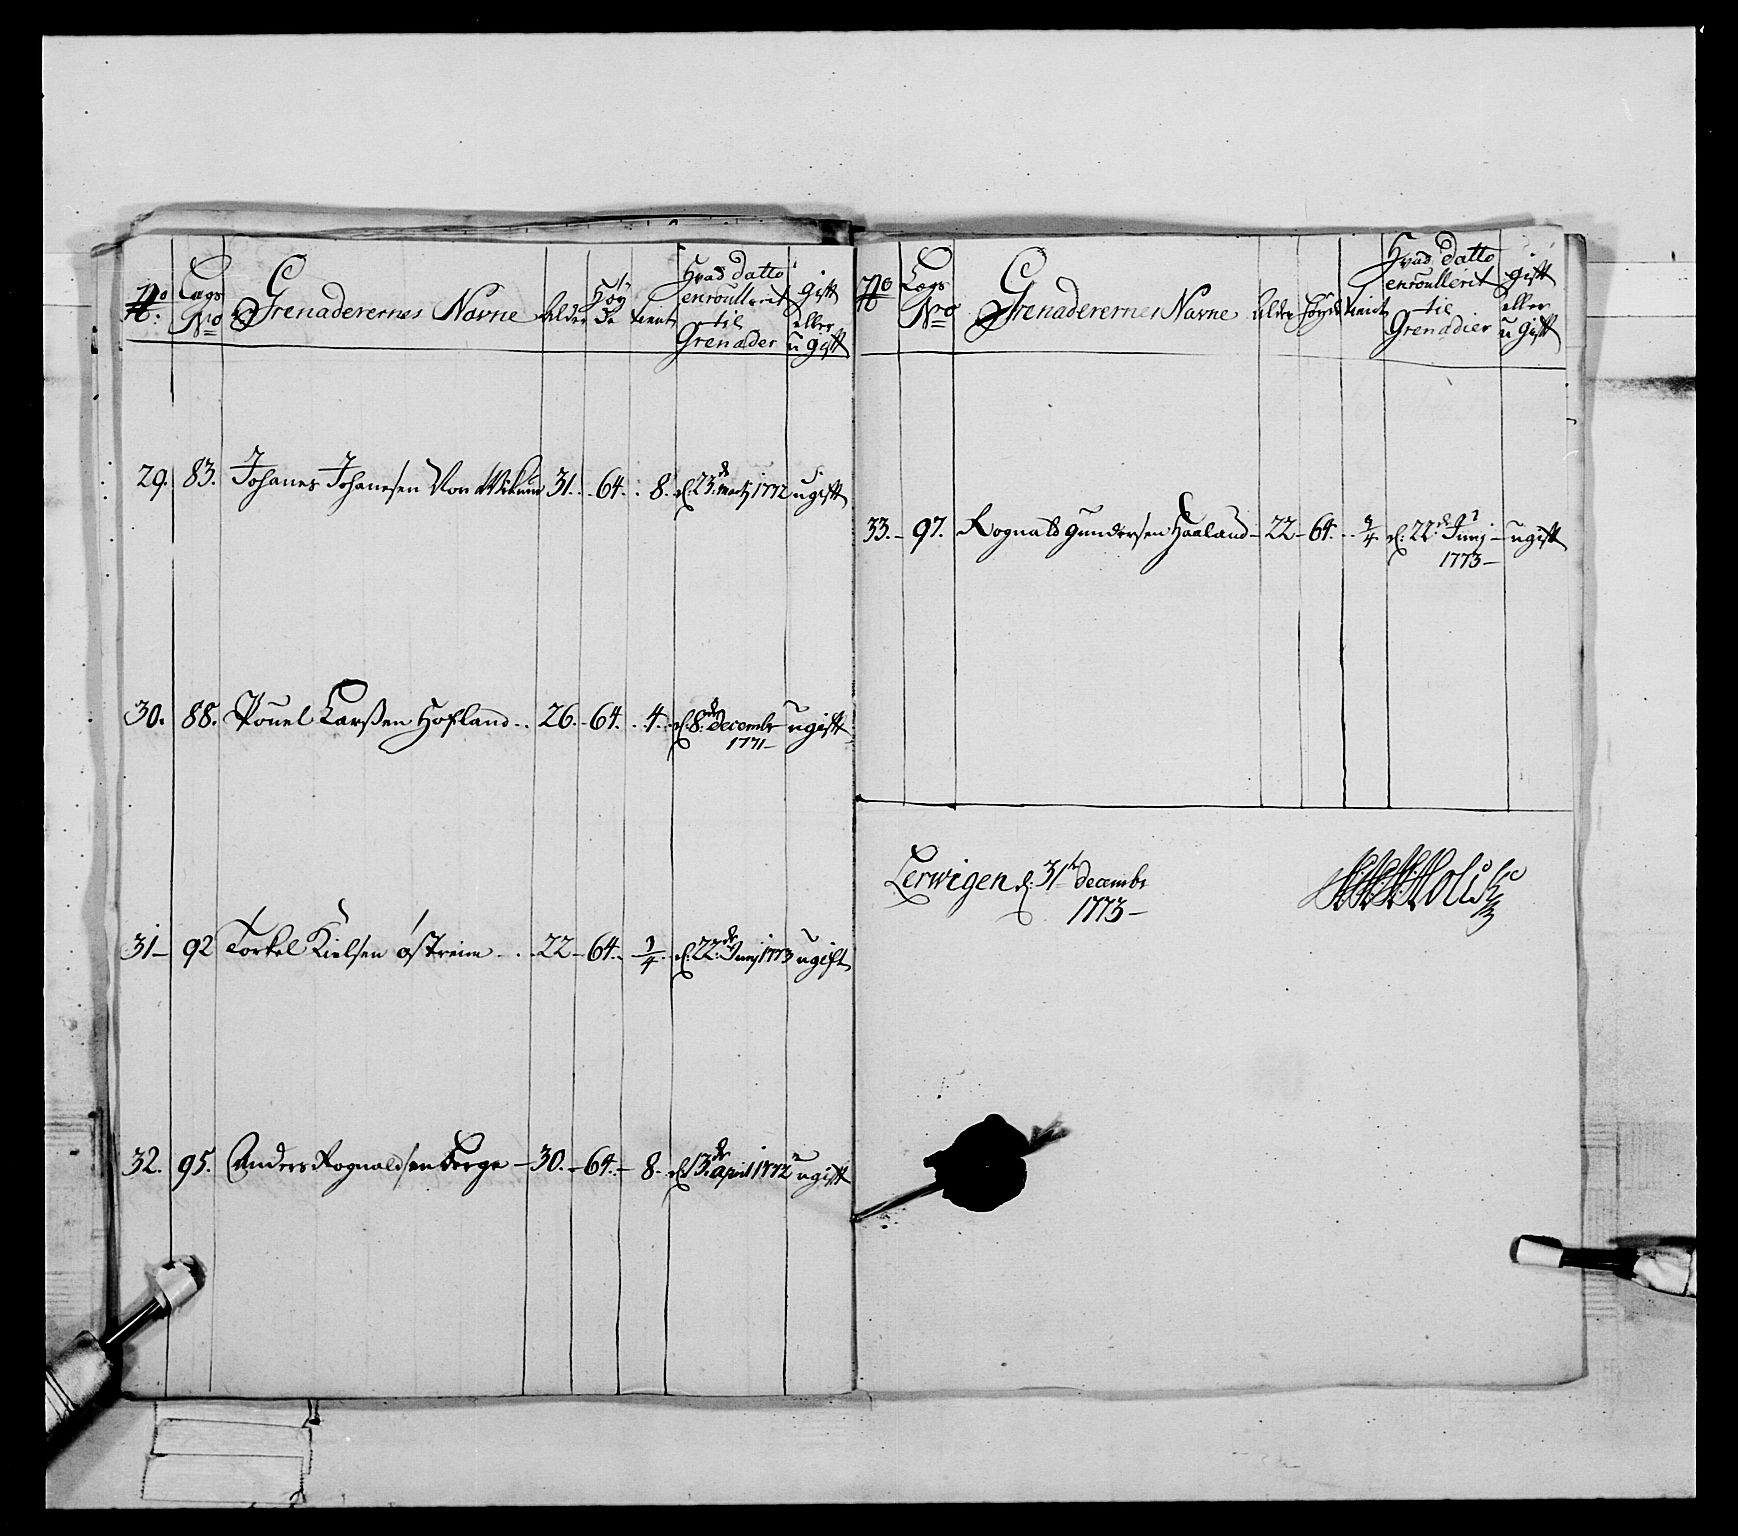 No. Lægs No Grenaderernes Navne Alder Høyde tient Hvad Datto enroullerit til Grenader Gift eller u Gift
29. 83. Johanes Johanesen Von Wikum 31. 64. 8. d: 23de Martj 1772 ugift
30. 88. Pouel Larssen Hofland 26. 64. 4. d. 8de Decembr 1771 ugift
31 92 Torkel Kielsen Østreim 22 64. 1/4 d. 22de Junj 1773 ugift
32. 95. Anders Rognaldsen Berge 30. 64. 8. d. 13de April 1772 ugift
No Lægs No Grenaderernes Navne Alder Høyde tient Hvad Datto enroullerit til Grenadier gift eller u Gift
33. 97. Rognald Gundersen Haaland 22 64. 3/4 d. 22de Junj 1773 ugift
Lerwigen d. 31te Decembr
1773